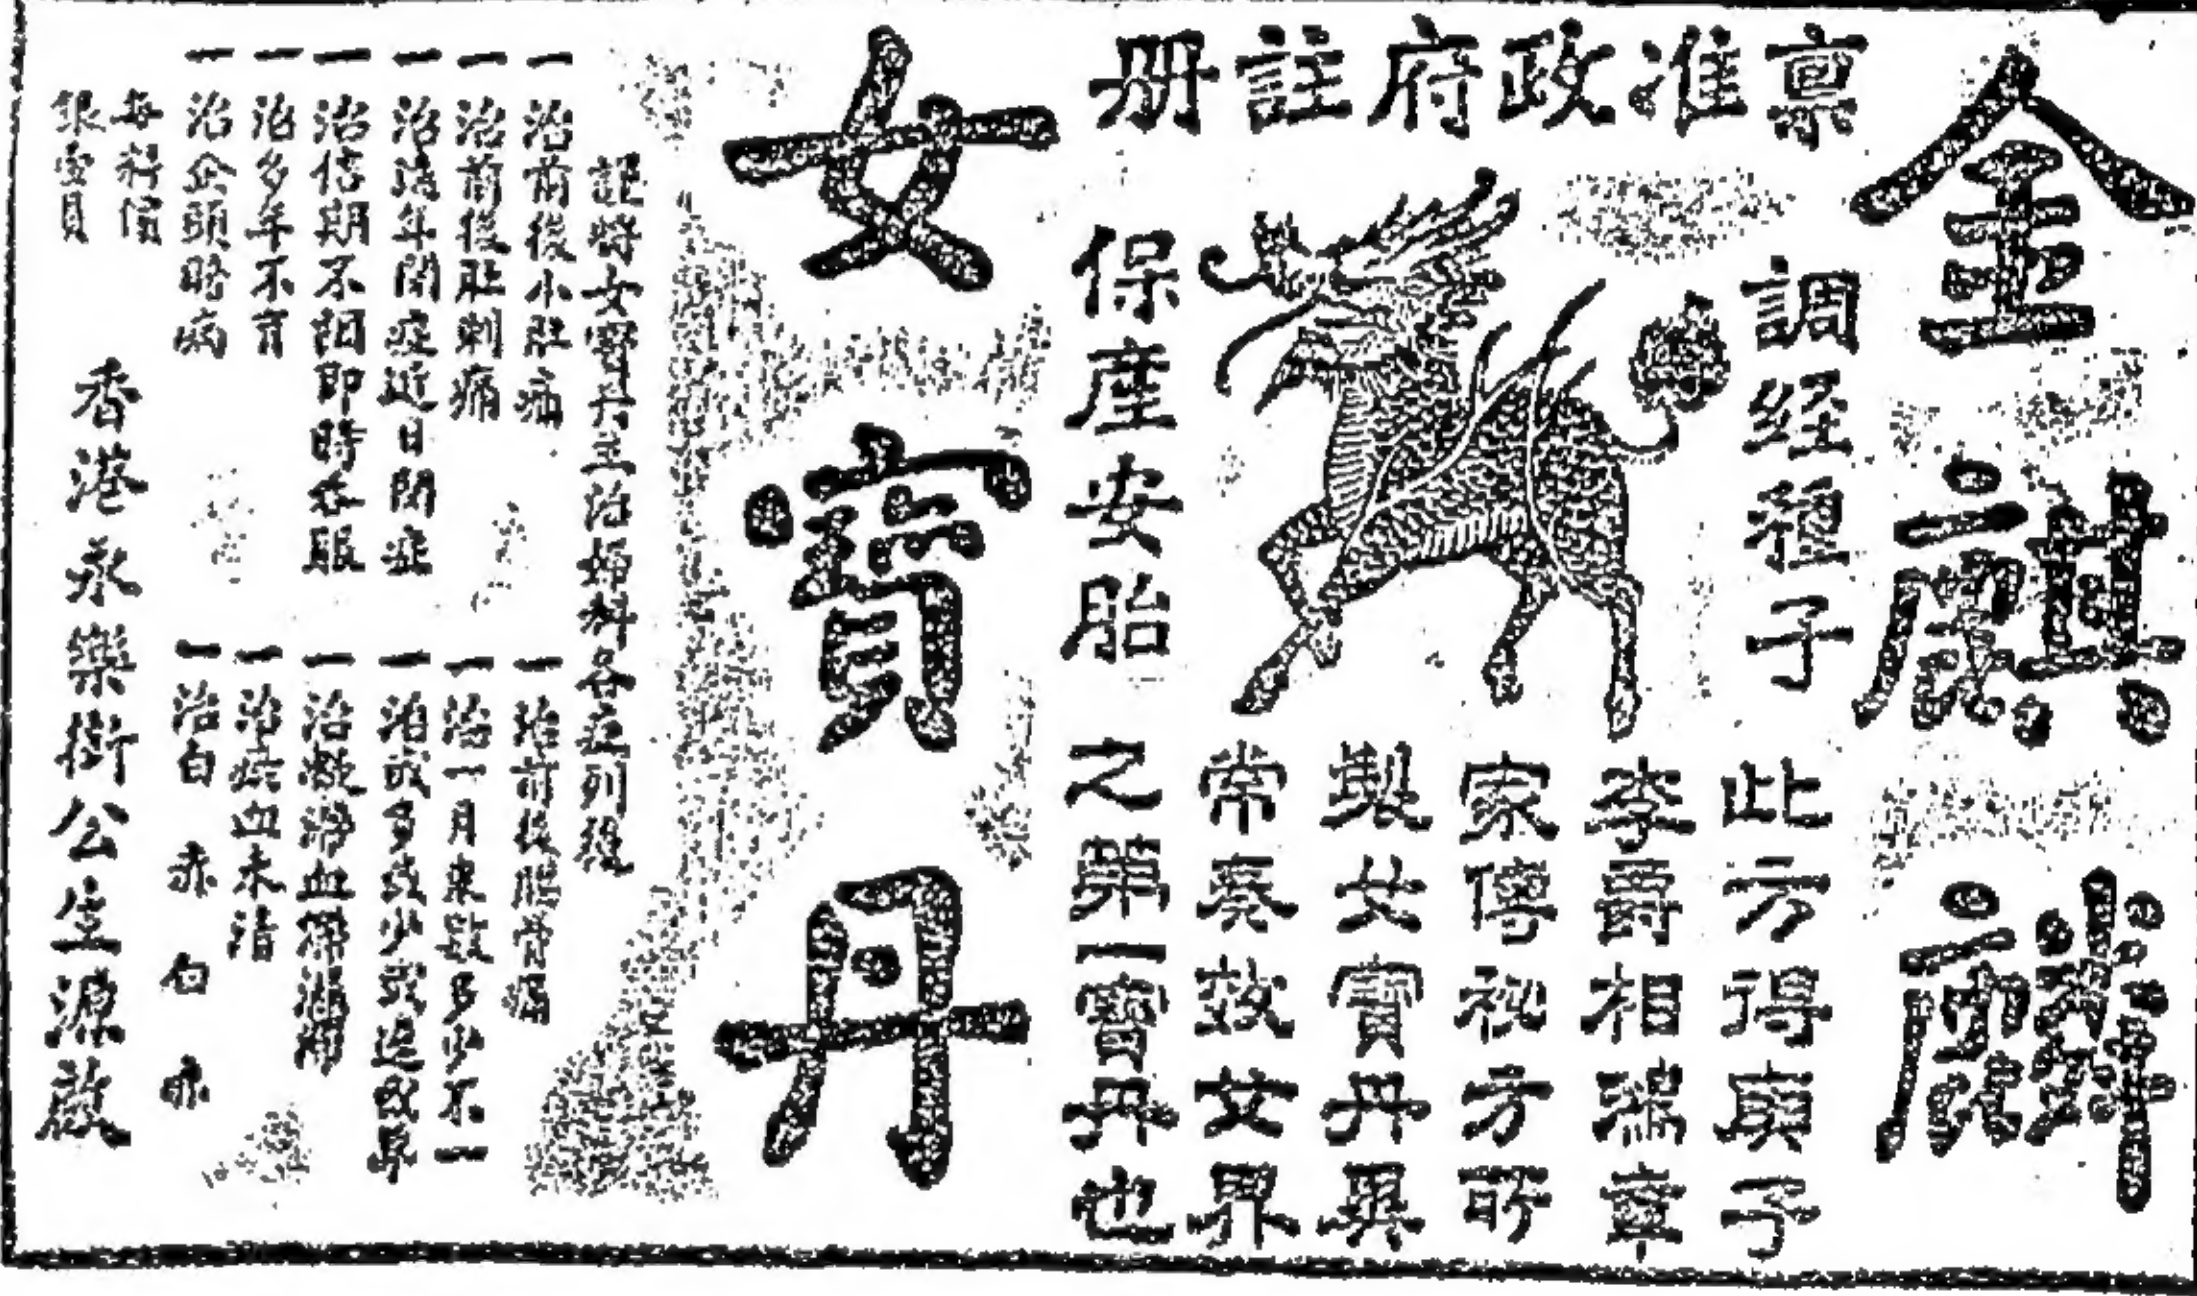 金麒麟
稟准政府註册
調經種子
保產安胎
此方得廟子
李爵相瀚章
家傳祕方所
製女寶丹異
常奏效女界
之第一寶丹也
女寶丹
謹將女寶丹主治婦科各症列後
一治前後小肚痛
一治前後肚刺痛
一治隔年閉症近日閉症
一治信期不調即時衣服
一治多年不育
一治企頭時病
一治前後腰骨痛
一治一月來數多少不一
一治或多或少或遲或早
一治凝滯血滯
一治瘀血未清
一治白赤白赤
每料價
銀壹員
香港永樂街公生源啟